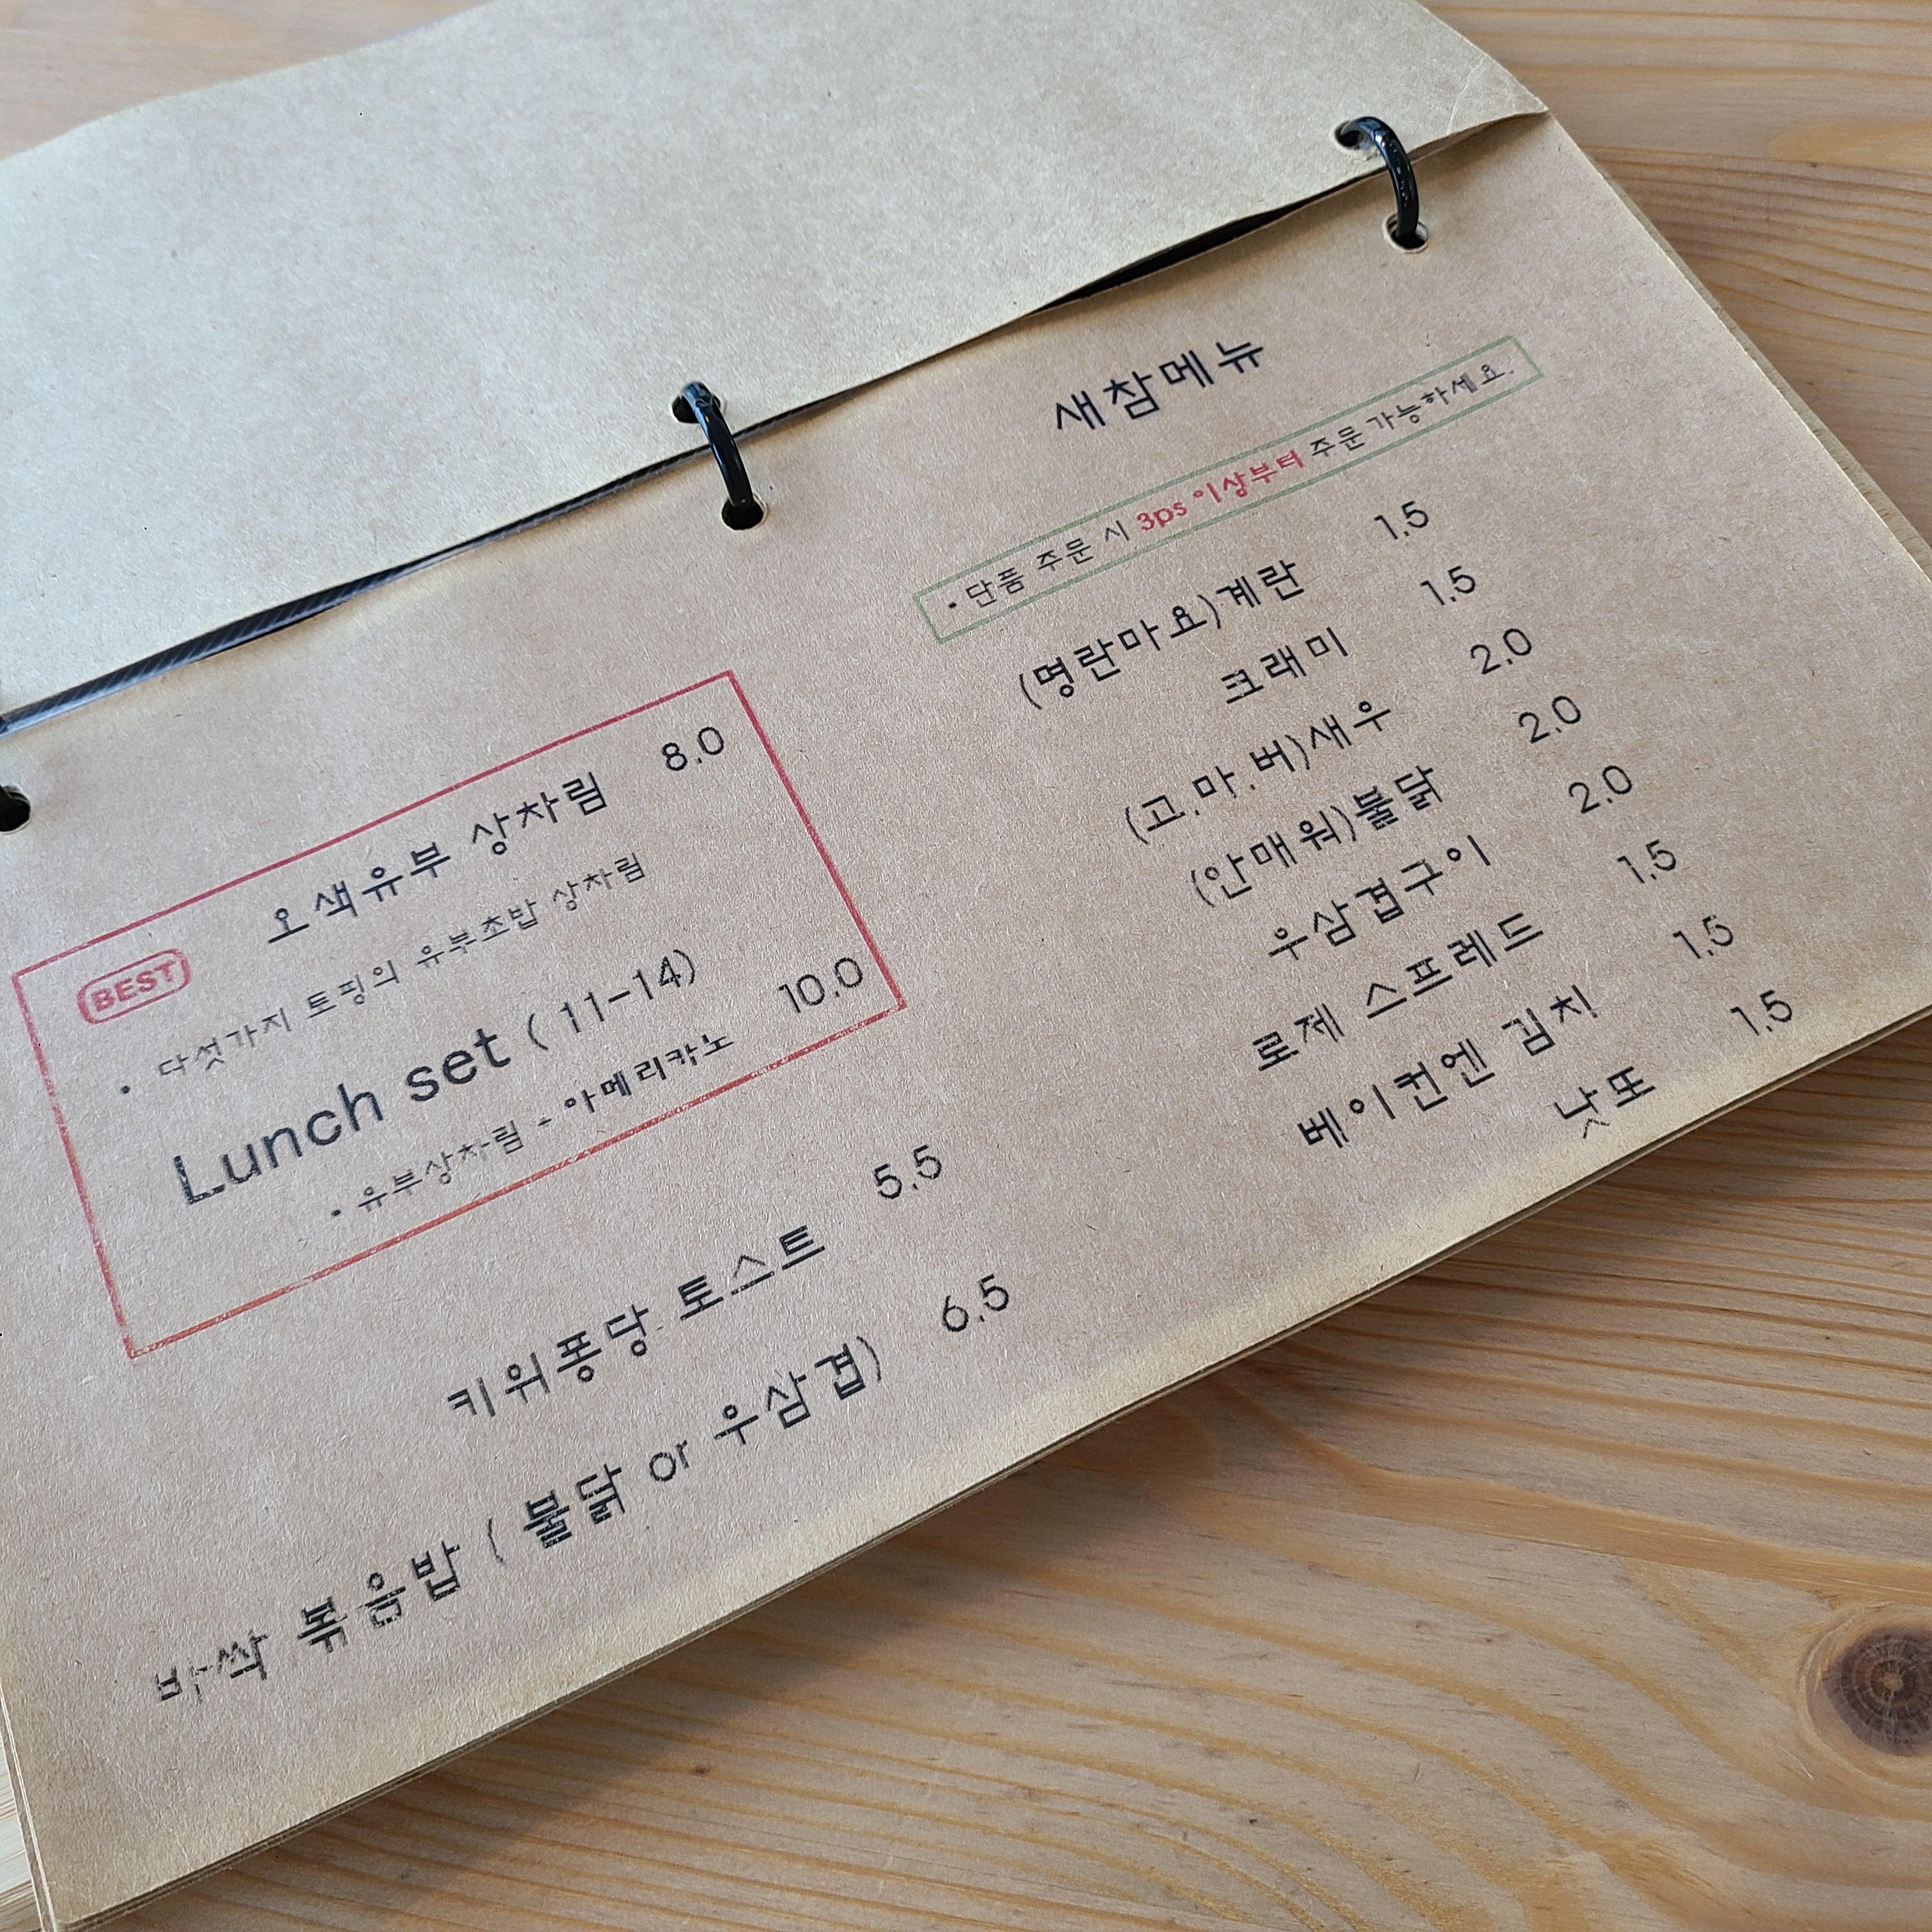 새참메뉴
• 단품 주문 시 3ps 이상부터 주문 가능하세요.
(명란마요)계란 1.5
크래미 1.5
(고.마.버)새우 2.0
(안매워)불닭 2.0
우삼겹구이 2.0
로제 스프레드 1.5
베이컨엔 김치 1.5
낫또 1.5
오색유부 상차림 8.0
BEST
• 다섯가지 토핑의 유부초밥 상차림
Lunch set (11-14)
• 유부상차림 + 아메리카노 10.0
키위퐁당 토스트 5.5
바싹 볶음밥 ( 불닭 or 우삼겹) 6.5